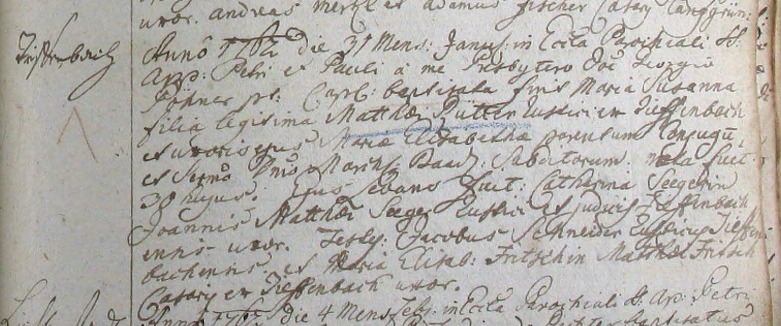 uxor. Andreas Merckl et Adamus Fischer
Tieffenbach
Anno 1762 die 31 Mens: Januar: in Eccla Parochiali SS:
App: Petri et Pauli à me Presbytero Joe Georgio
baptizata fuit Maria Susanna
filia legitima Matthæi Pütter Rustici ex Tieffenbach
et uxoris ejus Mariæ Elisabetha parentum conjugū
et Sermo Dno March: Baad: Subditorum. nata fuit
30 hujus. Ejus levans fuit: Catharina Seegerin
Joannis Matthæi Seeger Rustici et judicis Tieffenbach
ensis uxor. Testes: Jacobus Schneider Rusticus Tieffen
bachensis et Maria Elisab: Fritschin Matthæi Fritsch
ex Tieffenbach uxor.
Anno 1762 die 4 Mens: Feb: in Eccla Parochiali SS: Ap: Petri